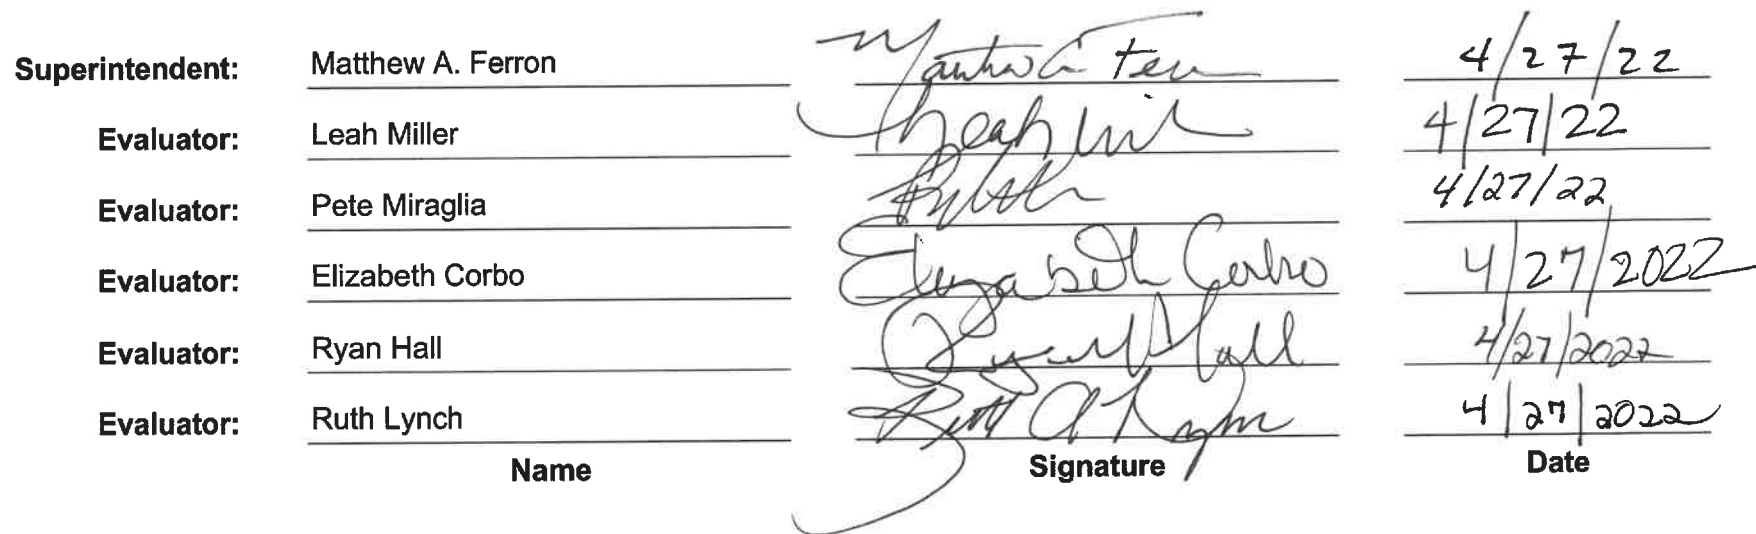 Superintendent: Matthew A. Ferron 4/27/22
Evaluator: Leah Miller 4/27/22
Evaluator: Pete Miraglia 4/27/22
Evaluator: Elizabeth Corbo Elizabeth Corbo 4/27/2022
Evaluator: Ryan Hall Ryan Hall 4/27/2022
Evaluator: Ruth Lynch Ruth A Lynch 4/27/2022
Name Signature Date